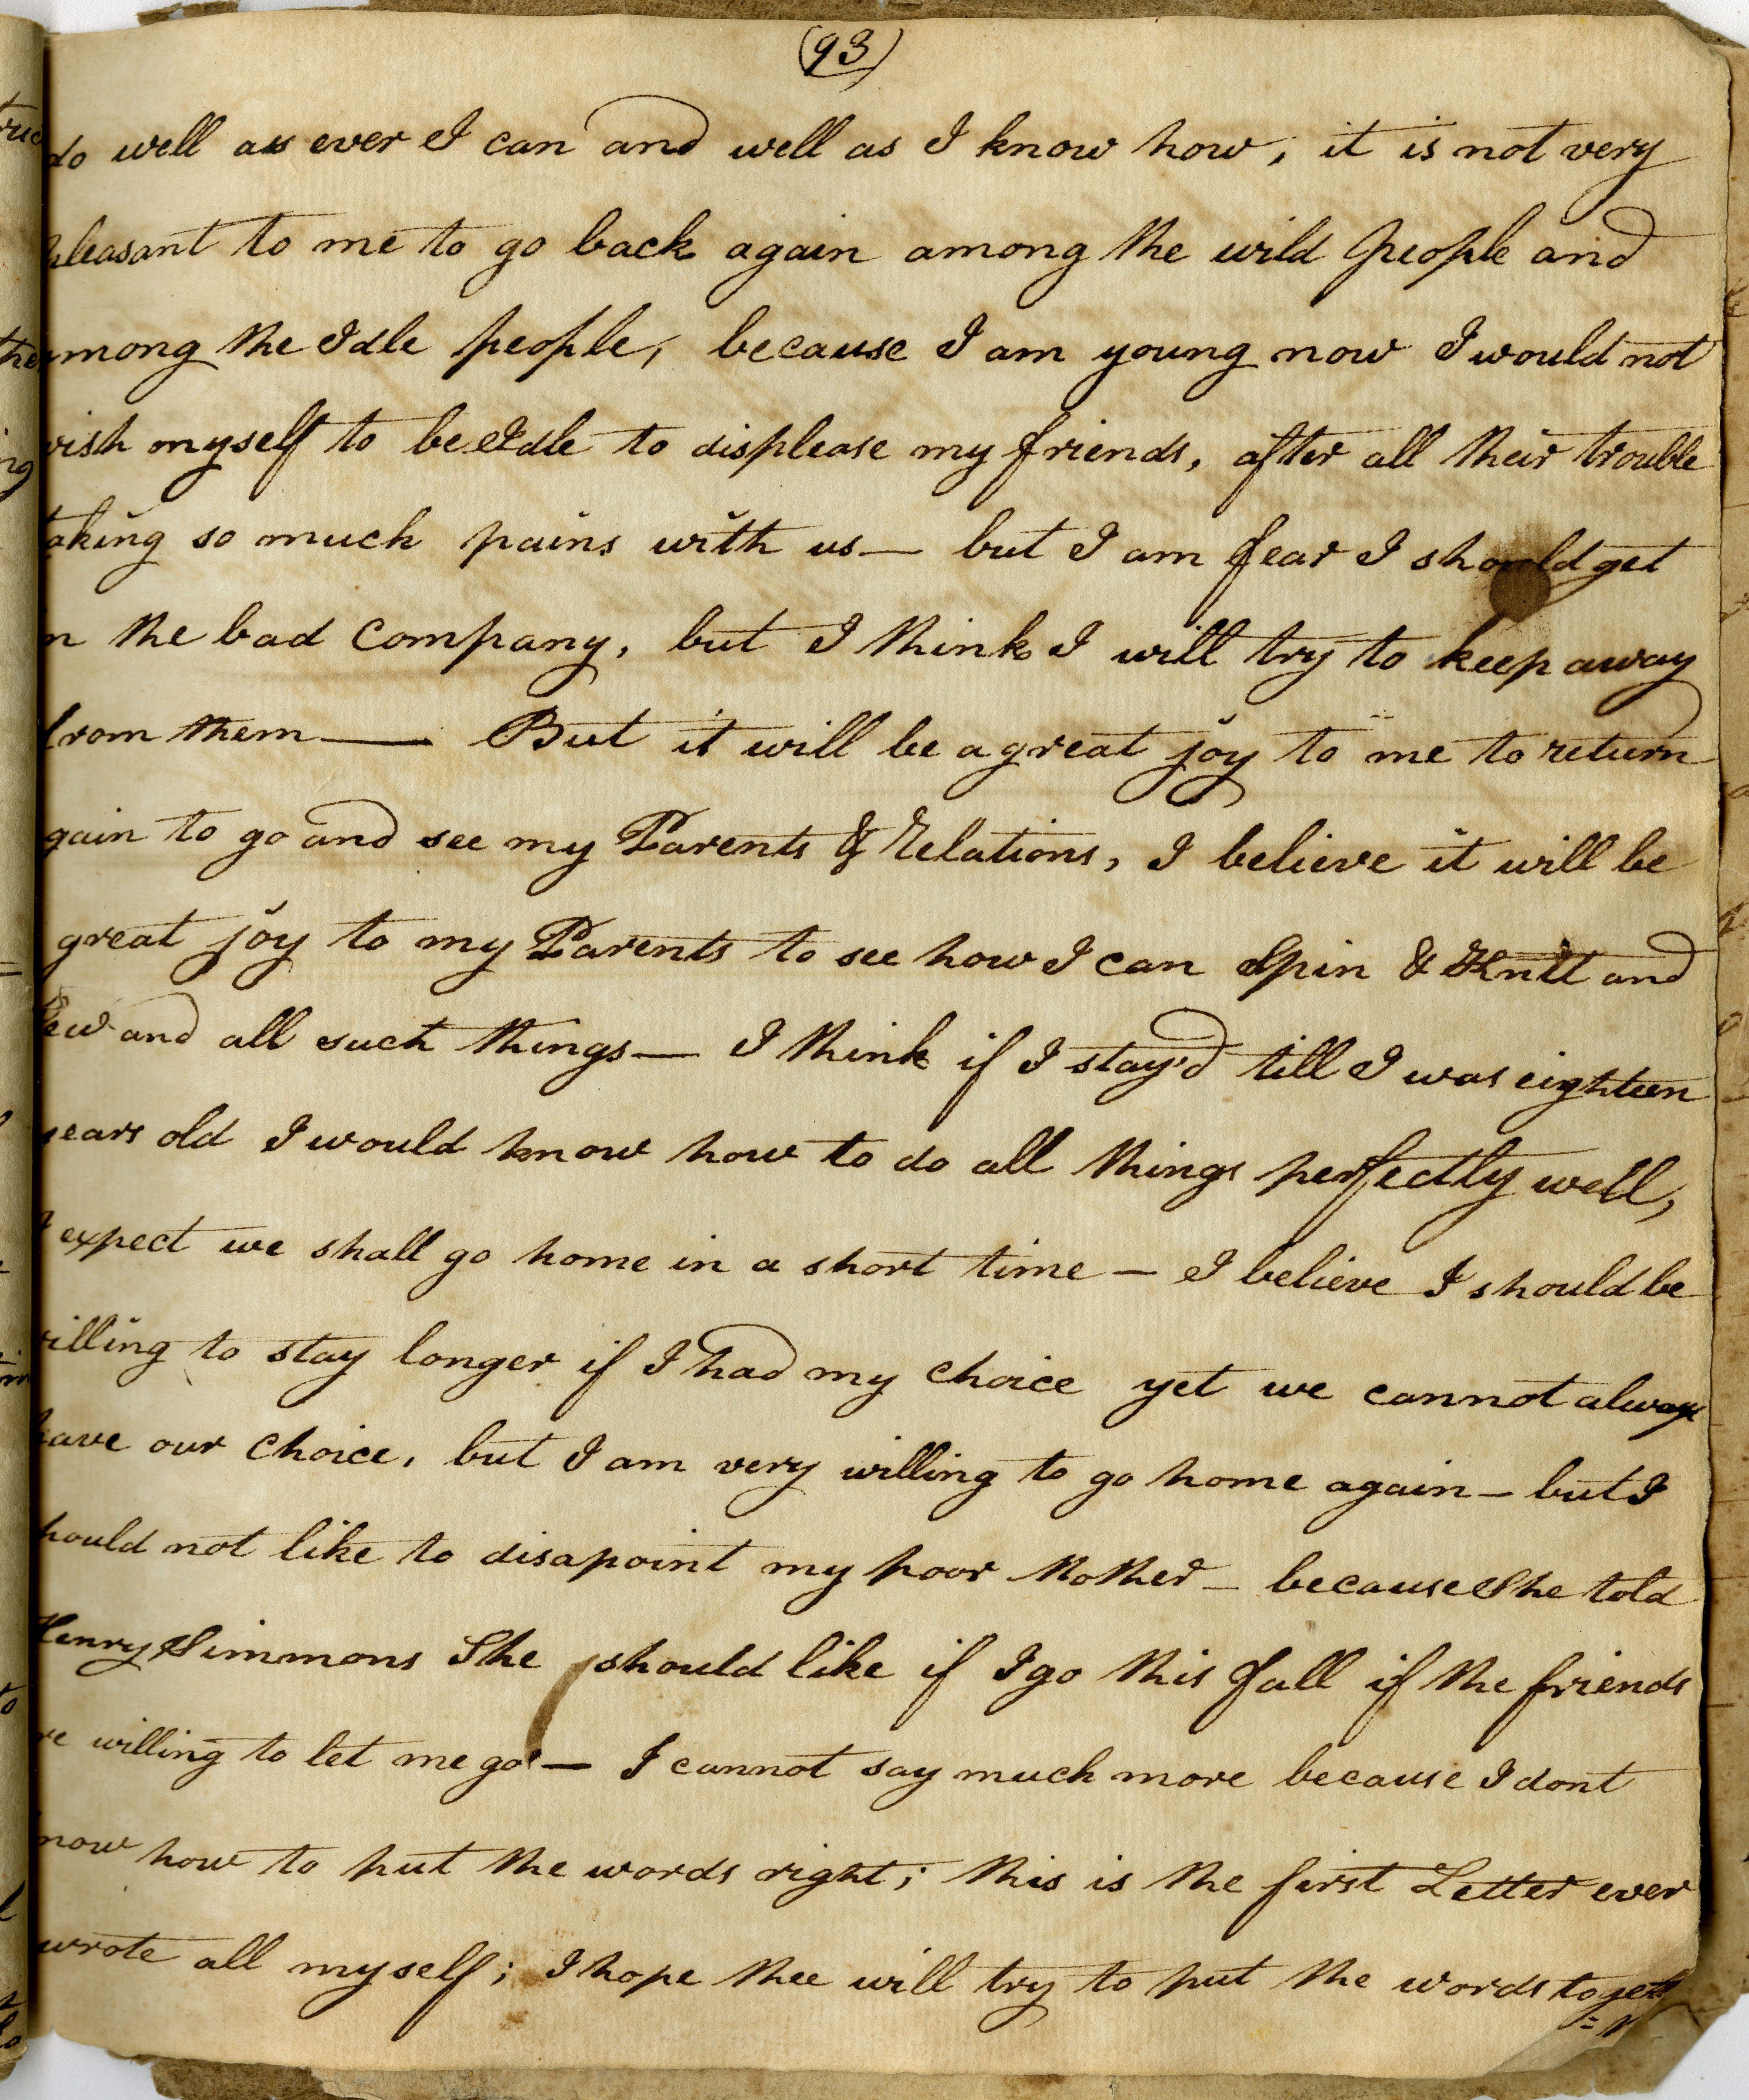 (93)
do well as ever I can and well as I know how, it is not very
pleasant to me to go back again among the wild people and
among the Idle people, because I am young now I would not
wish myself to be Idle to displease my friends, after all their trouble
taking so much pains with us — but I am fear I should get
in the bad Company, but I think I will try to keep away
from them — But it will be a great joy to me to return
again to go and see my Parents & Relations, I believe it will be
great joy to my Parents to see how I can Spin & Knit and
Sew and all such things — I think if I stay'd till I was eighteen
years old I would know how to do all things perfectly well,
I expect we shall go home in a short time — I believe I should be
willing to stay longer if I had my Choice yet we cannot always
have our Choice, but I am very willing to go home again — but I
should not like to disapoint my poor Mother — because She told
Henry Simmons She should like if I go this fall if the friends
are willing to let me go — I cannot say much more because I dont
know how to put the words right; this is the first Letter ever
wrote all myself; I hope thee will try to put the words togeth